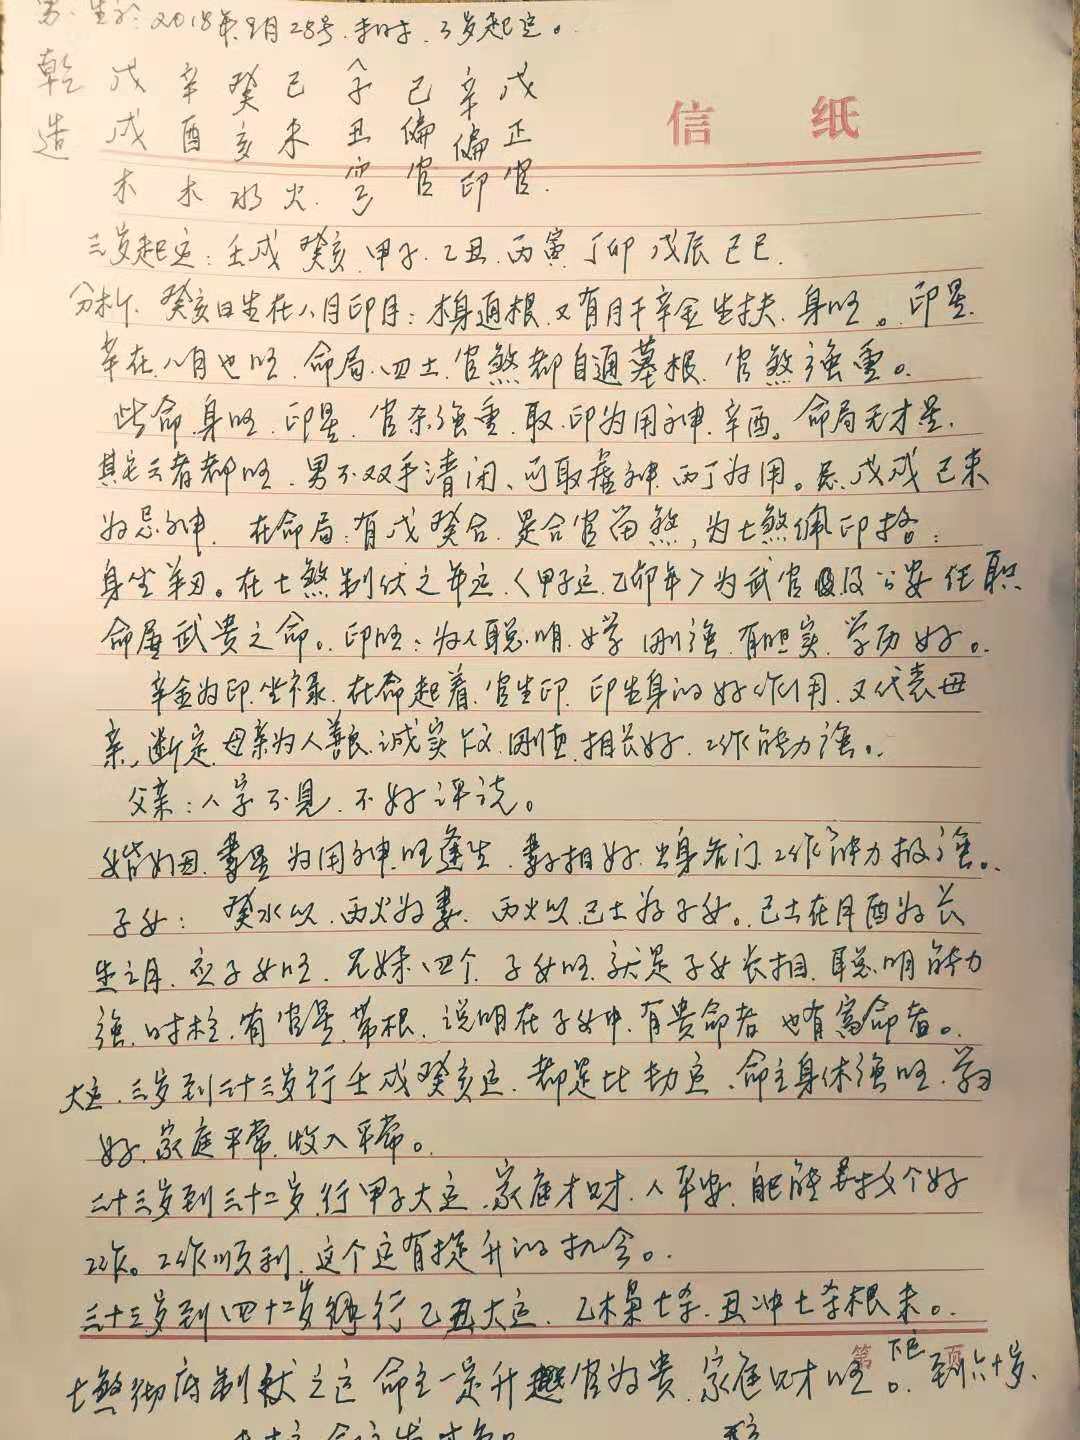 男.生于:2018年.9月28号.未时.3岁起运。
乾 戊 辛 癸 己 子 己 辛 戊
造 戌 酉 亥 未 丑 偏 偏 正
木 木 水 火. 空 官 印 官.
信 纸
三岁起运:壬戌 癸亥.甲子.乙丑.丙寅.丁卯 戊辰 己巳.
分析.癸亥日生在八月印月:本身通根.又有月干辛金生扶.身旺。印星.
辛在八月也旺.命局.四土.官煞都自通墓根.官煞强重。
此命.身旺.印星.官杀强重.取.印为用神.辛酉。命局无才星.
其它三者都旺.男不双手清闭、可取 神.丙丁为用。忌.戊戌己未
为忌神.在命局:有戊癸合.是合官留煞,为七煞佩印格:
身坐羊刃。在七煞制伏之年运.〈甲子运.乙卯年〉为武官 及公安任职
命属武贵之命。印旺:为人聪.明.好学 刚强.有胆实.学历好。
辛金为印.坐禄.在命起着.官生印.印生身的好作用.又代表母
亲,断定.母亲为人善良.诚实 .刚直.相长好.工作能力强。
父亲:八字不见.不好评说。
婚姻 .妻星为用神.旺逢生.妻子相好.出身名门.工作能力极强。
子女: 癸水以.丙火为妻.丙火以.己土为子女。己土在月酉为长
生之月.应子女旺.兄妹.四个.子女旺.就是子女长相.聪明能力
强.时柱.有官星.带根.说明在子女中.有贵命者 也有富命者。
大运.三岁到二十三岁行壬戌癸亥运.都是比劫运.命主身体强旺.学习
好.家庭平常.收入平常。
二十三岁到三十二岁.行甲子大运.家庭才财.人平安.能 找个好
工作。工作顺利.这个运有提升的机会。
三十三岁到四十二岁 行乙丑大运.乙木枭七杀.丑冲七杀根未。
第 页
七煞彻底制伏之运 命主一定升 官为贵.家庭财才旺。下包.到六十岁.